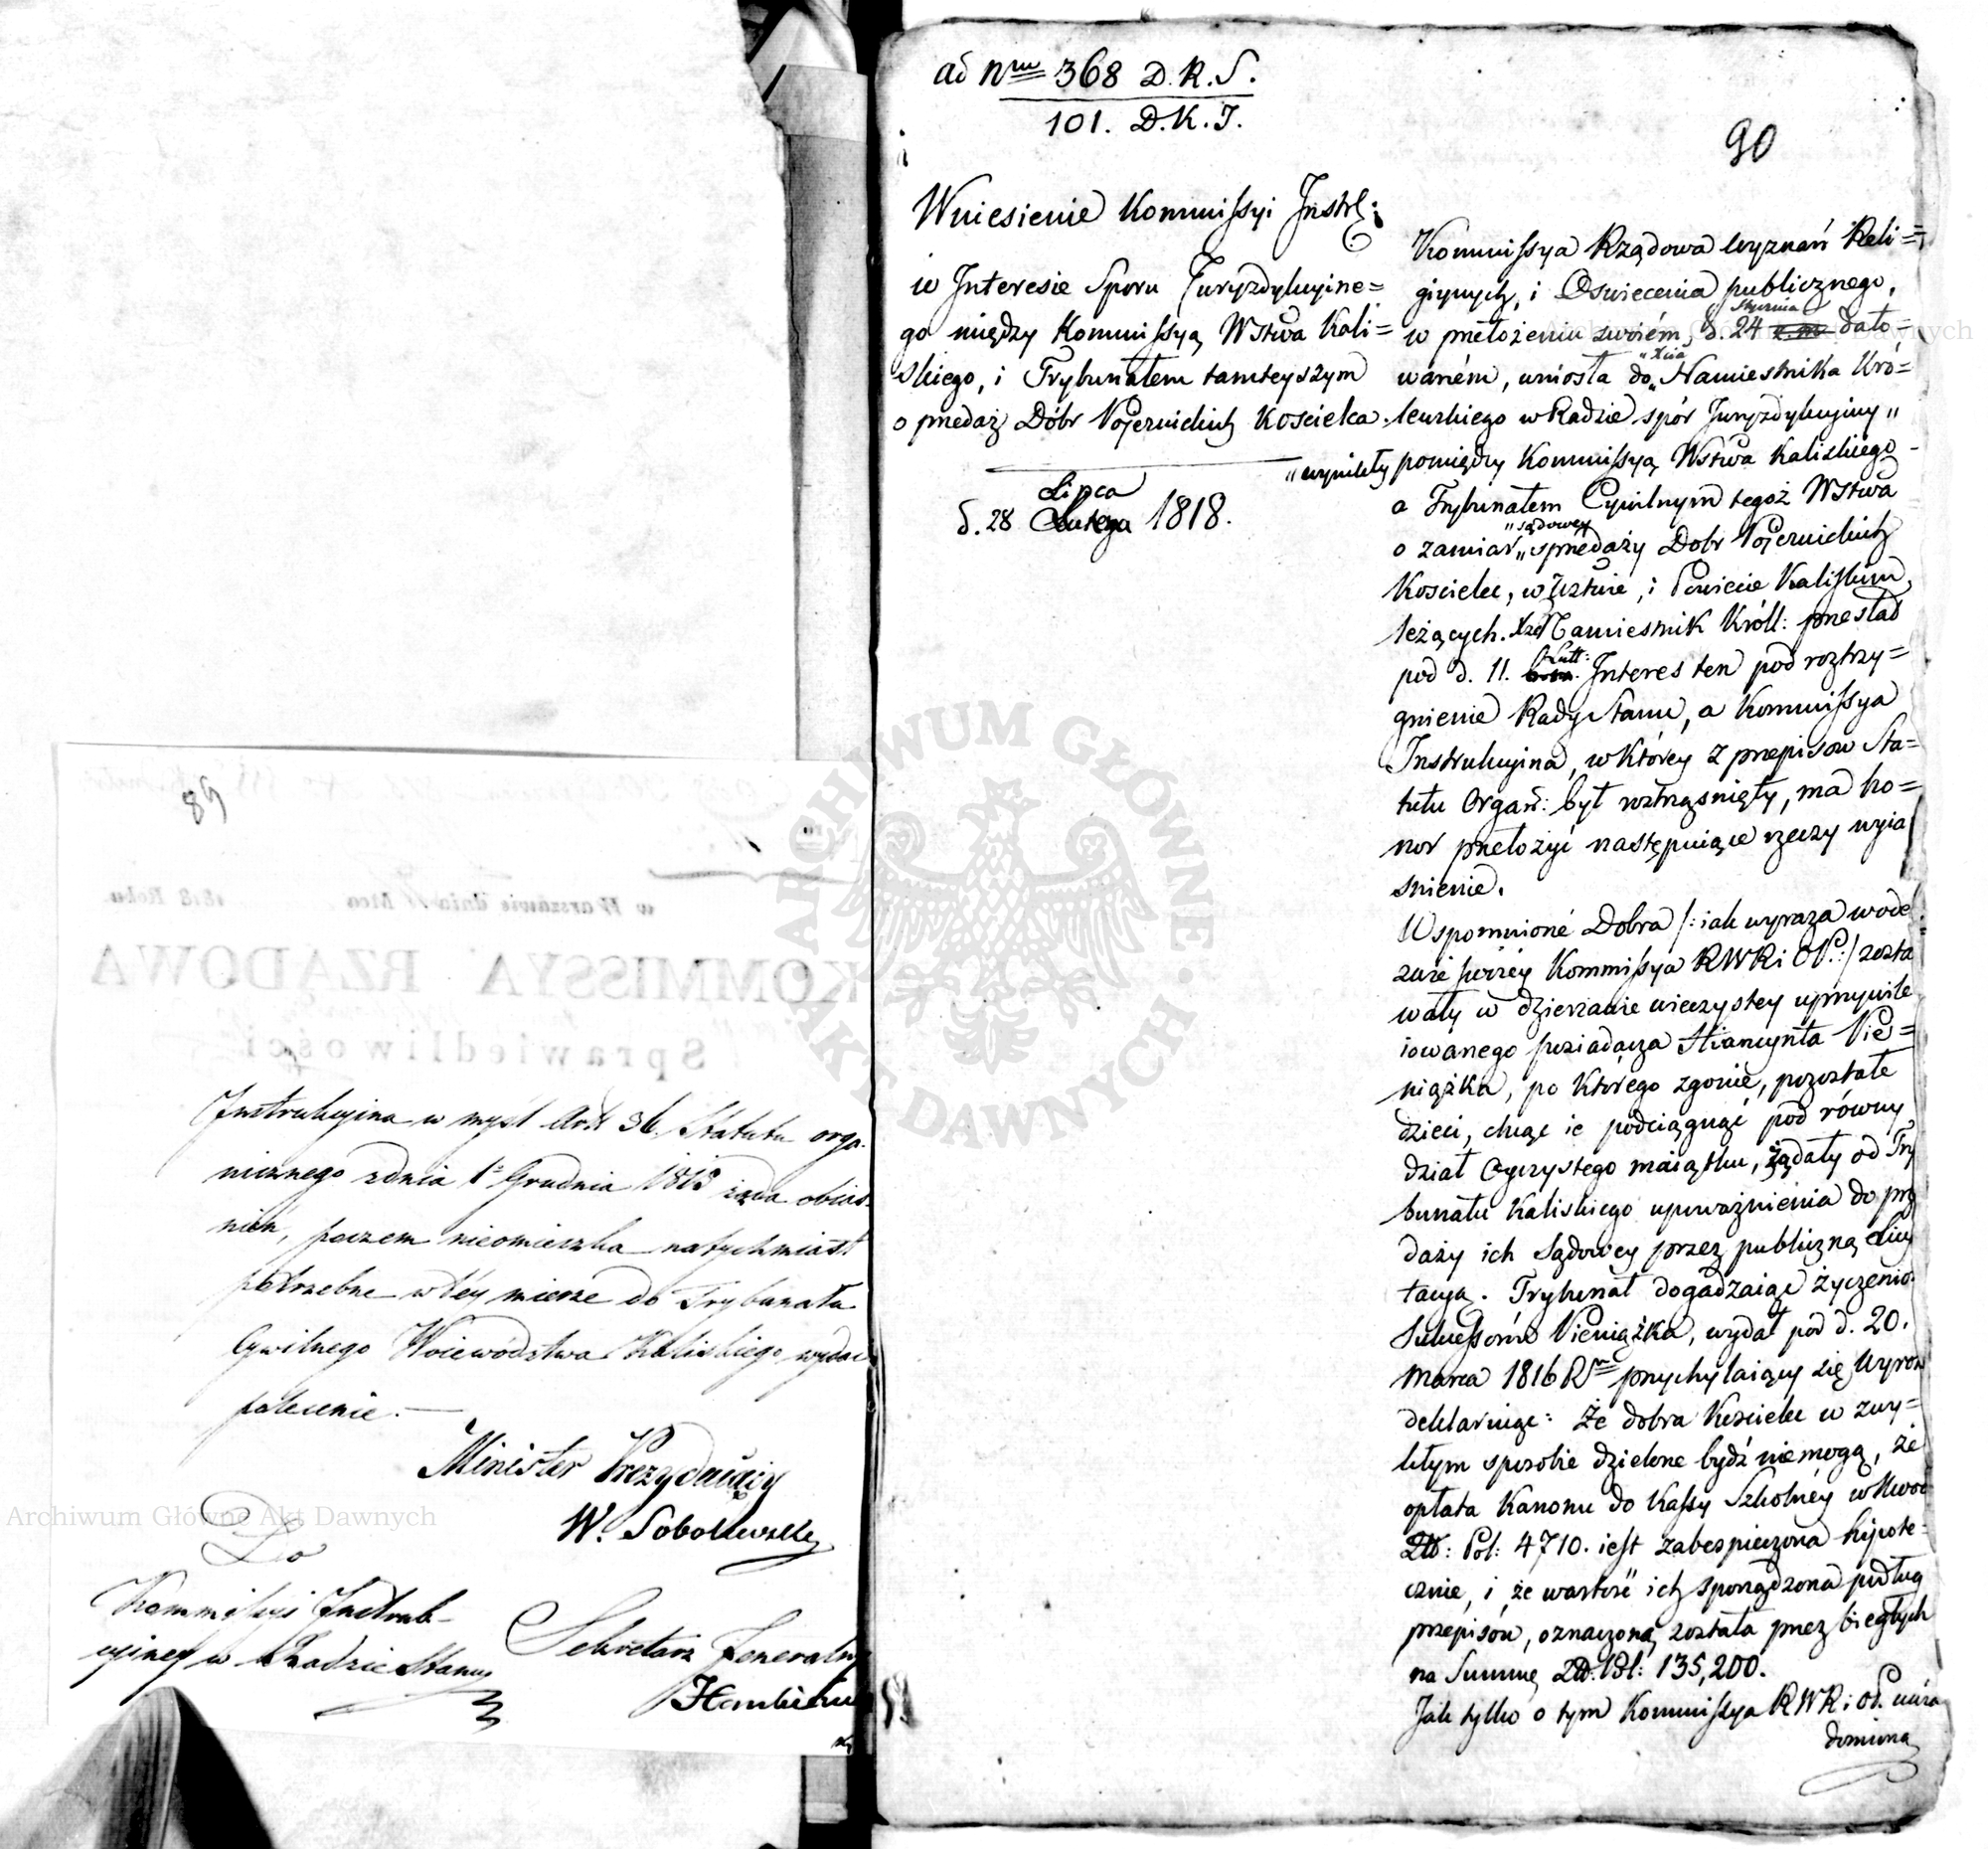 89
Instrukcyina w myśl Art 36. Statutu orga-
nicznego zdnia 1º Grudnia 1815 żąda obiaś-
nień, poczem nieomieszka natychmiast
potrzebne w téy mierze do Trybunału
Cywilnego Woiewództwa Kaliskiego wydać
polecenie. —
Minister Prezyduiący
W. Sobolewski
Do
Kommissyi Instruk-
cyiney w Radzie Stanu
Sekretarz Jeneralny
KOMMISSYA RZĄDOWA
Sprawiedliwości
w Warszawie dnia Mca 1818 Roku.
ad Nrm 368 D.R.S.
101. D.K.J.
90
Wniesienie Kommissyi Instr:
w Interesie Sporu Juryzdykcyine=
go między Kommissyą Wstwa Kali=
skiego, i Trybunałem tamteyszym
o przedaż Dóbr Pojezuickich Kościelca.
Lipca
d. 28 Lutego 1818.
Kommissya Rządowa Wyznań Reli=
giynych, i Oswiecenia publicznego,
w przełożeniu swoiém, d. 24 Stycznia dato=
waném, wniosła do „Xcia Namiestnika Kró=
lewskiego w Radzie spór Juryzdykcyiny „
„wynikły pomiędzy Kommissyą Wstwa Kaliskiego
a Trybunałem Cywilnym tegoż Wstwa
o zamiar „sądowey sprzedaży Dobr Pojezuickich
Kościelec, w Wztwie, i Powiecie Kaliskim,
leżących. Xże Namiestnik Król: przesłał
pod d. 11. Lutt: Interes ten pod roztrzy=
gnienie Rady Stanu, a Kommissya
Instrukcyina, w którey z przepisow Sta=
tutu Organ: był roztrząśnięty, ma ho=
nor przełożyć następuiące rzeczy wyia
śnienie.
Wspomnioné Dobra /: iak wyraza w ode
zwie swéy Kommissya RWR i OP.:/ zosta
wały w dzierzawie wieczystey uprzywile
iowanego posiadacza Hiancynta Pie=
niążka, po którego zgonie, pozostałe
dzieci, chcąc ie podciągnąć pod równy
dział Oyczystego maiątku, żądały od Try
bunału Kaliskiego upoważnienia do prze
daży ich Sądowey przez publiczną Licy
tacyą. Trybunał dogadzaiąc życzenio
Sukcessorów Pieniążka, wydał pod d. 20.
Marca 1816 Rn przychylaiący się Wyrok
deklaruiąc: Że dobra Kościelec w zwy=
kłym sposobie dzielone bydź niemogą, że
opłata Kanonu do Kassy Szkolnéy w kwoc
Złt: Pol: 4710. iest zabespieczona hipote=
cznie, i że wartość ich sporządzona podług
przepisów, oznaczoną została przez biegłych
na Summę Złt. Pol: 135,200.
Jak tylko o tym Kommissya RWR i OP. uwia
domiona
ARCHIWUM GŁÓWNE AKT DAWNYCH
Archiwum Główne Akt Dawnych
Archiwum Główne Akt Dawnych